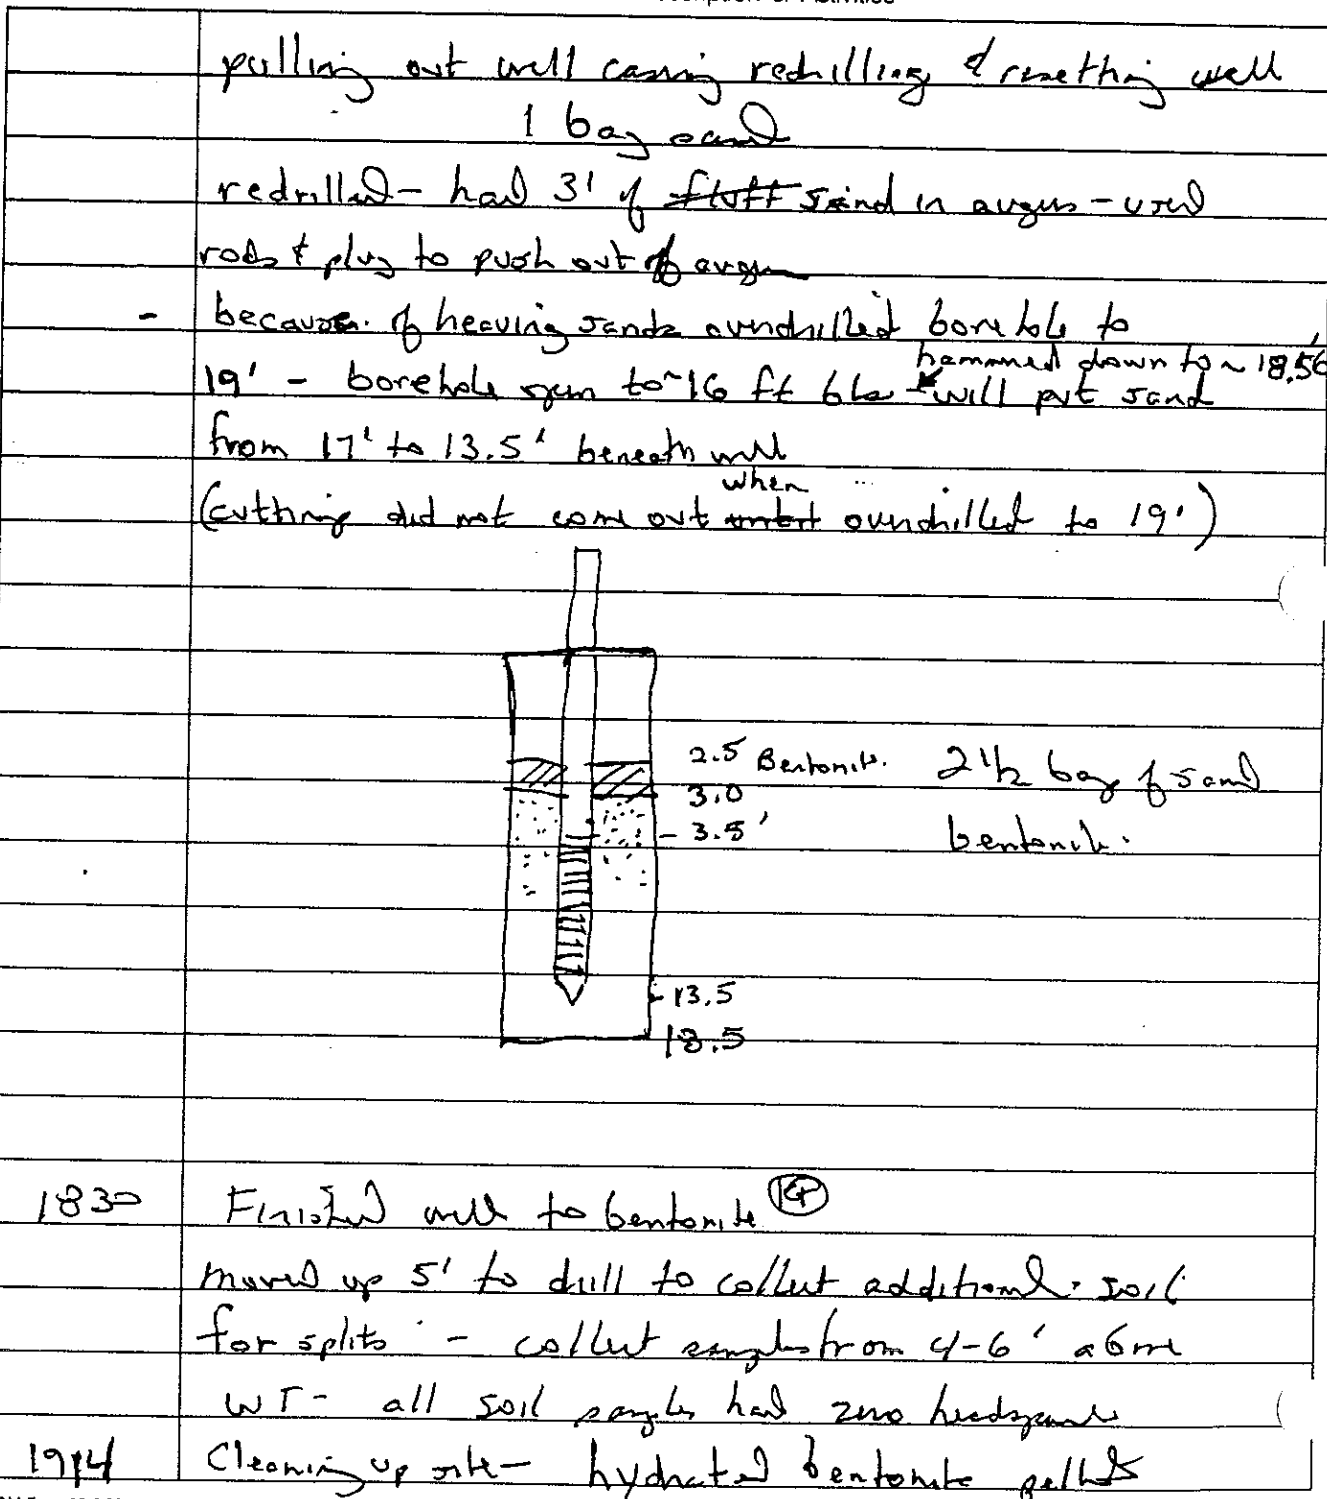 pulling out well casing redrilling & resetting well
1 bag sand
redrilled - had 3' of fluff sand in augers - used
rods & plug to push out of auger
- because of heaving sands overdrilled borehole to
hammered down to ~ 18.5
19' - borehole open to ~16 ft bls - will put sand
from 17' to 13.5' beneath well
when
(cutting did not come out overdrilled to 19')
2.5 Bentonite. 2 1/2 bag of sand
3.0
- 3.5' bentonite.
- 13.5
18.5
1830 Finished well to bentonite
moved up 5' to drill to collect additional soil
for splits - collect samples from 4-6' above
WT - all soil samples had zero headspace
1914 Cleaning up site - hydrated bentonite pellets